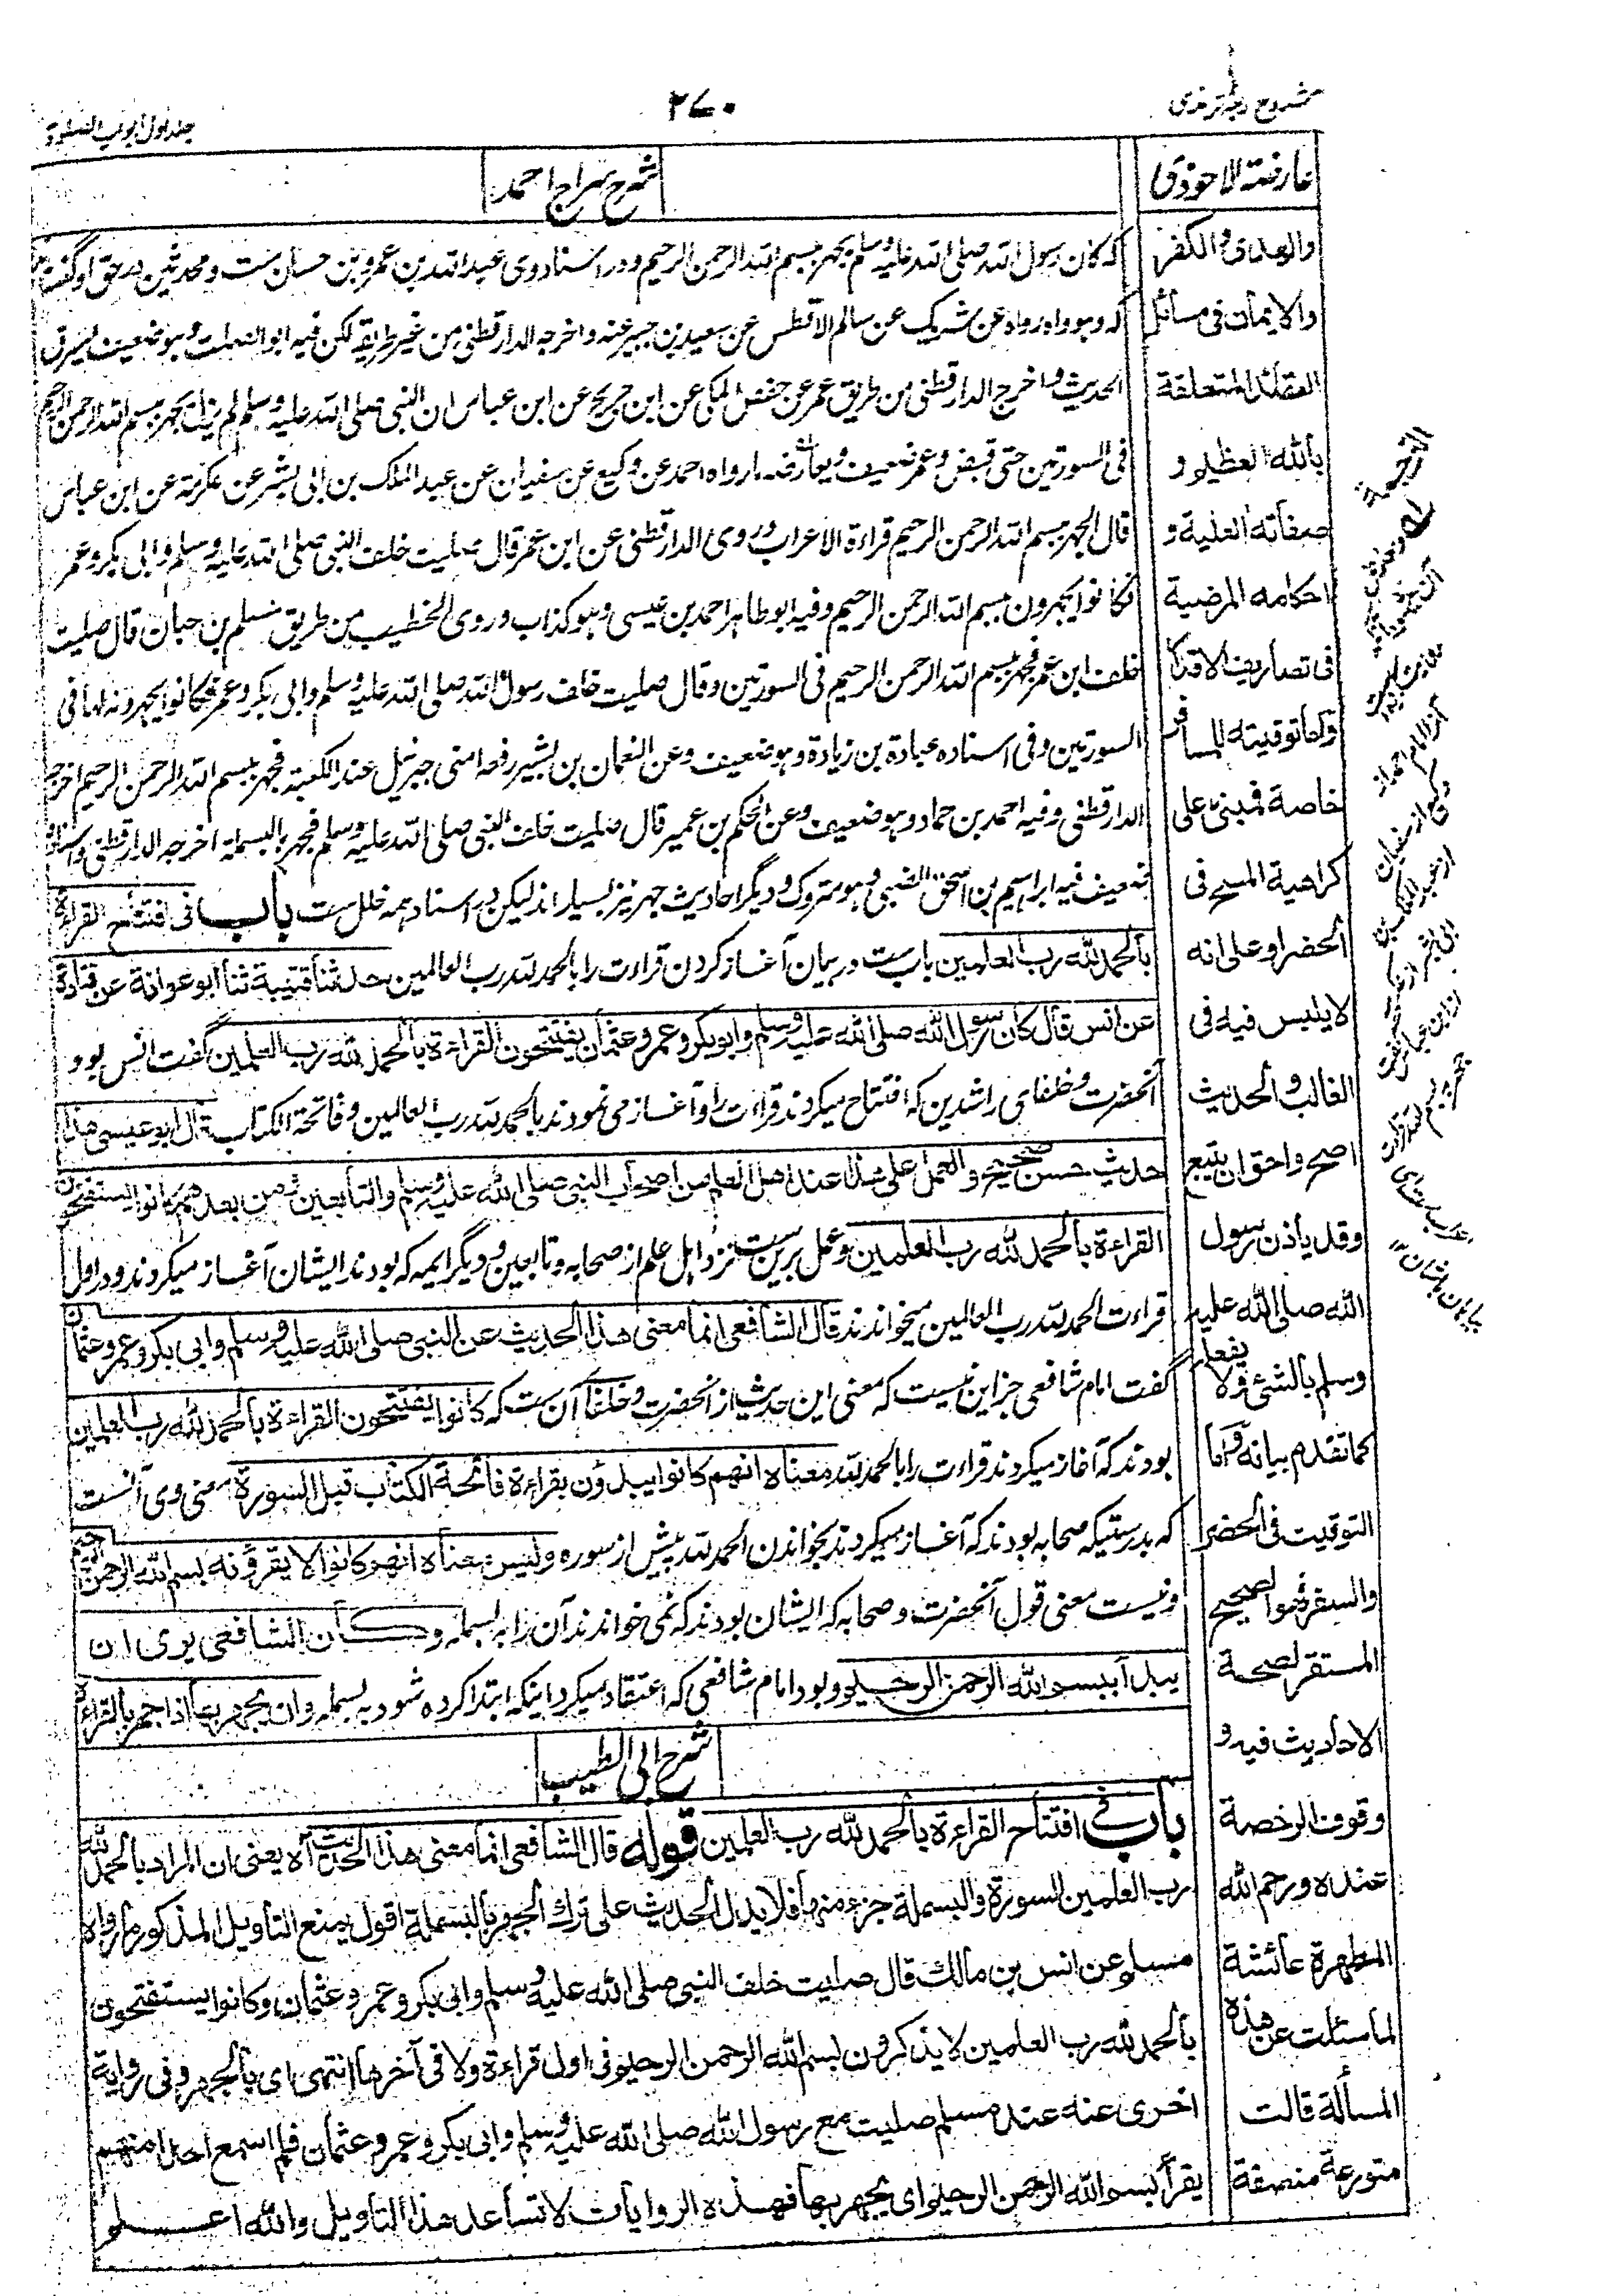 شروح اربعه ترمذی
۲۷۰
جلد اول ابواب الصلوة
عارضة الاحوذی
والهدی والكفر
والايمان فی مسائل
العقائد المتعلقة
بالله العظيم و
صفاته العلية و
احكامه المرضية
فی تصاريف الاقدار
واما توقيته للمسافر
خاصة فمبنی علی
كراهية المسح فی
الحضر او علی انه
لا يلبس فيه فی
الغالب والحديث
اصح واحق ان يتبع
وقد ياذن رسول
الله صلی الله عليه
وسلم بالشئ ولا يفعله
كما تقدم بيانه واما
التوقيت فی الحضر
والسفر فهو الصحيح
المستقر لصحة
الاحاديث فيه و
وقوف الرخصة
عنده ورحم الله
المطهرة عائشة
لما سئلت عن هذه
المسألة قالت
متورعة منصفة
شرح سراج احمد
كه كان رسول الله صلی الله عليه وسلم يجهر ببسم الله الرحمن الرحيم ودر اسناد وی عبد الله بن عمرو بن حسان ست ومحدثين در حق او گفته
له وهو واه رواه عن شريك عن سالم الافطس عن سعيد بن جبير عنه واخرجه الدارقطنی من غير طريقه لكن فيه ابو الصلت وهو ضعيف يسرق
الحديث واخرج الدارقطنی من طريق عمر عن حفص المكی عن ابن جريج عن ابن عباس ان النبی صلی الله عليه وسلم لم يزل يجهر ببسم الله الرحمن الرحيم
فی السورتين حتی قبض وعمر ضعيف ويعارضه ما رواه احمد عن وكيع عن سفيان عن عبد الملك بن ابی بشر عن عكرمة عن ابن عباس
قال الجهر ببسم الله الرحمن الرحيم قراءة الاعراب وروی الدارقطنی عن ابن عمر قال صليت خلف النبی صلی الله عليه وسلم وابی بكر وعمر
فكانوا يجهرون ببسم الله الرحمن الرحيم وفيه ابو طاهر احمد بن عيسی وهو كذاب وروی الخطيب من طريق مسلم بن حبان قال صليت
خلف ابن عمر فجهر ببسم الله الرحمن الرحيم فی السورتين وقال صليت خلف رسول الله صلی الله عليه وسلم وابی بكر وعمر فكانوا يجهرونها فی
السورتين وفی اسناده عبادة بن زيادة وهو ضعيف وعن النعمان بن بشير رفعه امنی جبرئيل عند الكعبة فجهر ببسم الله الرحمن الرحيم اخرجه
الدارقطنی وفيه احمد بن حماد وهو ضعيف وعن الحكم بن عمير قال صليت خلف النبی صلی الله عليه وسلم فجهر بالبسملة اخرجه الدارقطنی واسناده
ضعيف فيه ابراهيم بن اسحق الضبی وهو متروك وديگر احاديث جهر نيز بسيار اند ليكن در اسناد همه خلل ست باب فی افتتاح القراءة
بالحمد لله رب العلمين باب ست در بيان آغاز كردن قراءت را بالحمد لله رب العالمين حدثنا قتيبة ثنا ابو عوانة عن قتادة
عن انس قال كان رسول الله صلی الله عليه وسلم وابوبكر وعمر وعثمان يفتتحون القراءة بالحمد لله رب العلمين گفت انس بود
آنحضرت وخلفای راشدين كه افتتاح ميكردند قراءت را وآغاز می نمودند بالحمد لله رب العالمين وفاتحة الكتاب قال ابو عيسی هذا
حديث حسن صحيح والعمل علی هذا عند اهل العلم من اصحاب النبی صلی الله عليه وسلم والتابعين ومن بعدهم كانوا يستفتحون
القراءة بالحمد لله رب العلمين وعمل برين ست نزد اهل علم از صحابه وتابعين وديگر ايمه كه بودند ايشان آغاز ميكردند ودر اول
قراءت الحمد لله رب العالمين ميخواندند قال الشافعی انما معنی هذا الحديث عن النبی صلی الله عليه وسلم وابی بكر وعمر وعثمان
گفت امام شافعی جز اين نيست كه معنی اين حديث از آنحضرت وخلفا آن ست كه كانوا يفتتحون القراءة بالحمد لله رب العلمين
بودند كه آغاز ميكردند قراءت را بالحمد لله معناه انهم كانوا يبدؤن بقراءة فاتحة الكتاب قبل السورة معنی وی آنست
كه بدرستيكه صحابه بودند كه آغاز ميكردند بخواندن الحمد لله پيش از سوره وليس معناه انهم كانوا لا يقرؤنه بسم الله الرحمن الرحيم
ونيست معنی قول آنحضرت وصحابه كه ايشان بودند كه نمی خواندند آن را به بسمله وكان الشافعی يری ان
يبدأ ببسم الله الرحمن الرحيم وبود امام شافعی كه اعتقاد ميكرد اينكه ابتدا كرده شود به بسمله وان يجهر بها اذا جهر بالقراءة
شرح ابی الطيب
باب فی افتتاح القراءة بالحمد لله رب العلمين قوله قال الشافعی انما معنی هذا الحديث آه يعنی ان المراد بالحمد لله
رب العلمين السورة والبسملة جزء منها فلا يدل الحديث علی ترك الجهر بالبسملة اقول يمنع التاويل المذكور ما رواه
مسلم عن انس بن مالك قال صليت خلف النبی صلی الله عليه وسلم وابی بكر وعمر وعثمان وكانوا يستفتحون
بالحمد لله رب العلمين لا يذكرون بسم الله الرحمن الرحيم فی اول قراءة ولا فی آخرها انتهی ای بالجهر وفی رواية
اخری عنه عند مسلم صليت مع رسول الله صلی الله عليه وسلم وابی بكر وعمر وعثمان فلم اسمع احدا منهم
يقرأ بسم الله الرحمن الرحيم ای يجهر بها فهذه الروايات لا تساعد هذا التاويل والله اعلم
الترجمة